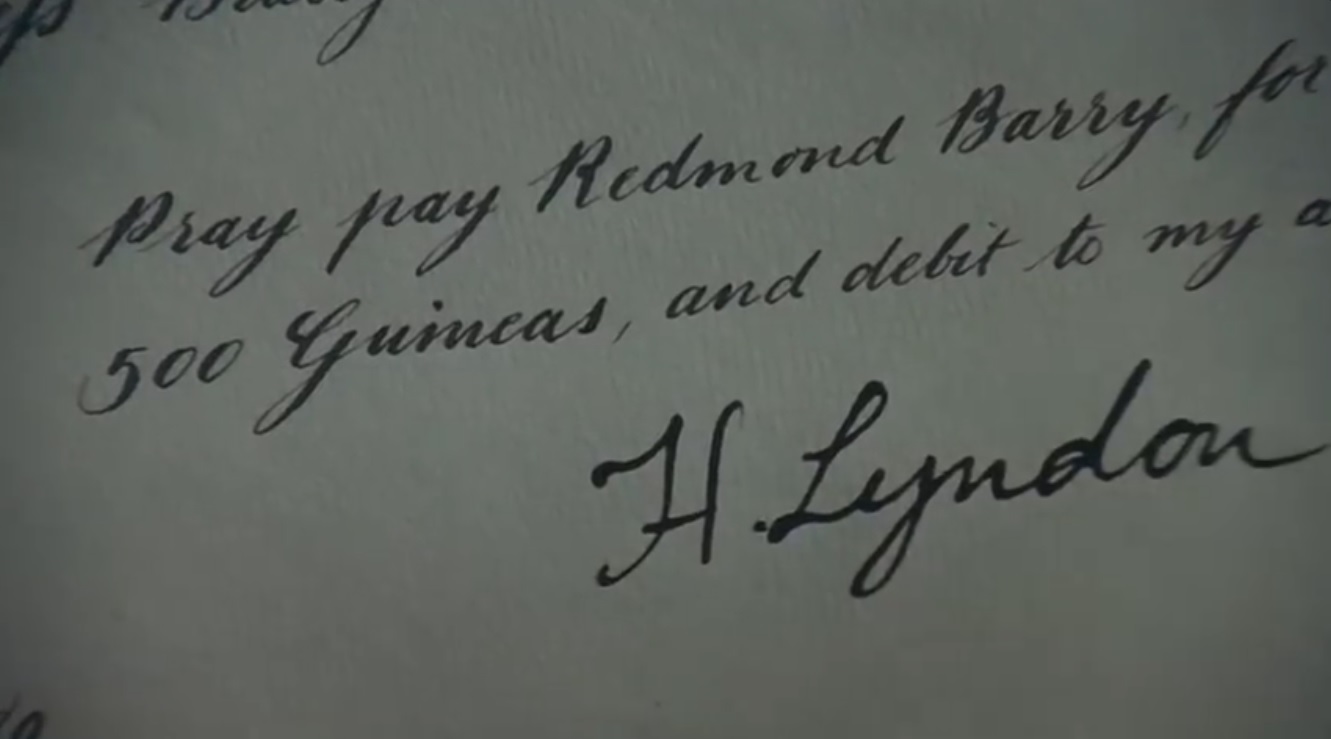 Pray pay Redmond Barry, for
500 Guineas, and debit to my a
H. Lyndon